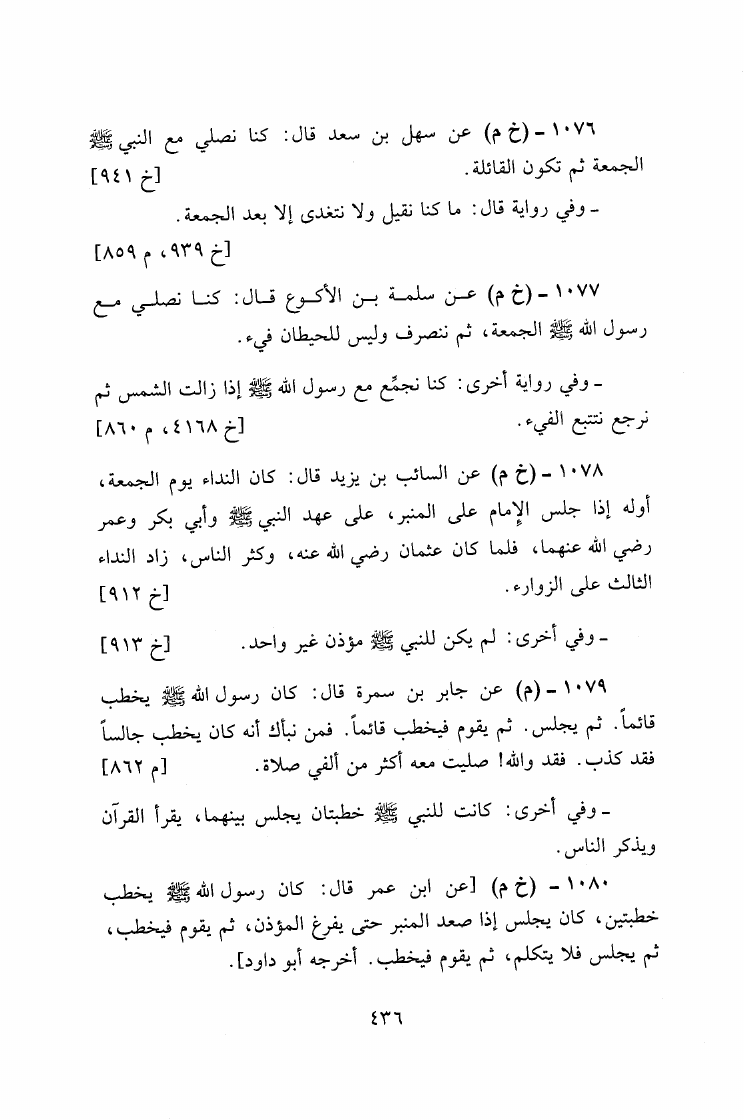 ١٠٧٦ - (خ م) عن سهل بن سعد قال: كنا نصلي مع النبي ﷺ
الجمعة ثم تكون القائلة. [خ ٩٤١]
- وفي رواية قال: ما كنا نقيل ولا نتغدى إلا بعد الجمعة.
[خ ٩٣٩، م ٨٥٩]
١٠٧٧ - (خ م) عن سلمة بن الأكوع قال: كنا نصلي مع
رسول الله ﷺ الجمعة، ثم ننصرف وليس للحيطان فيء.
- وفي رواية أخرى: كنا نجمِّع مع رسول الله ﷺ إذا زالت الشمس ثم
نرجع نتتبع الفيء. [خ ٤١٦٨، م ٨٦٠]
١٠٧٨ - (خ م) عن السائب بن يزيد قال: كان النداء يوم الجمعة،
أوله إذا جلس الإمام على المنبر، على عهد النبي ﷺ وأبي بكر وعمر
رضي الله عنهما، فلما كان عثمان رضي الله عنه، وكثر الناس، زاد النداء
الثالث على الزوارء. [خ ٩١٢]
- وفي أخرى: لم يكن للنبي ﷺ مؤذن غير واحد. [خ ٩١٣]
١٠٧٩ - (م) عن جابر بن سمرة قال: كان رسول الله ﷺ يخطب
قائماً. ثم يجلس. ثم يقوم فيخطب قائماً. فمن نبأك أنه كان يخطب جالساً
فقد كذب. فقد والله! صليت معه أكثر من ألفي صلاة. [م ٨٦٢]
- وفي أخرى: كانت للنبي ﷺ خطبتان يجلس بينهما، يقرأ القرآن
ويذكر الناس.
١٠٨٠ - (خ م) [عن ابن عمر قال: كان رسول الله ﷺ يخطب
خطبتين، كان يجلس إذا صعد المنبر حتى يفرغ المؤذن، ثم يقوم فيخطب،
ثم يجلس فلا يتكلم، ثم يقوم فيخطب. أخرجه أبو داود].
٤٣٦